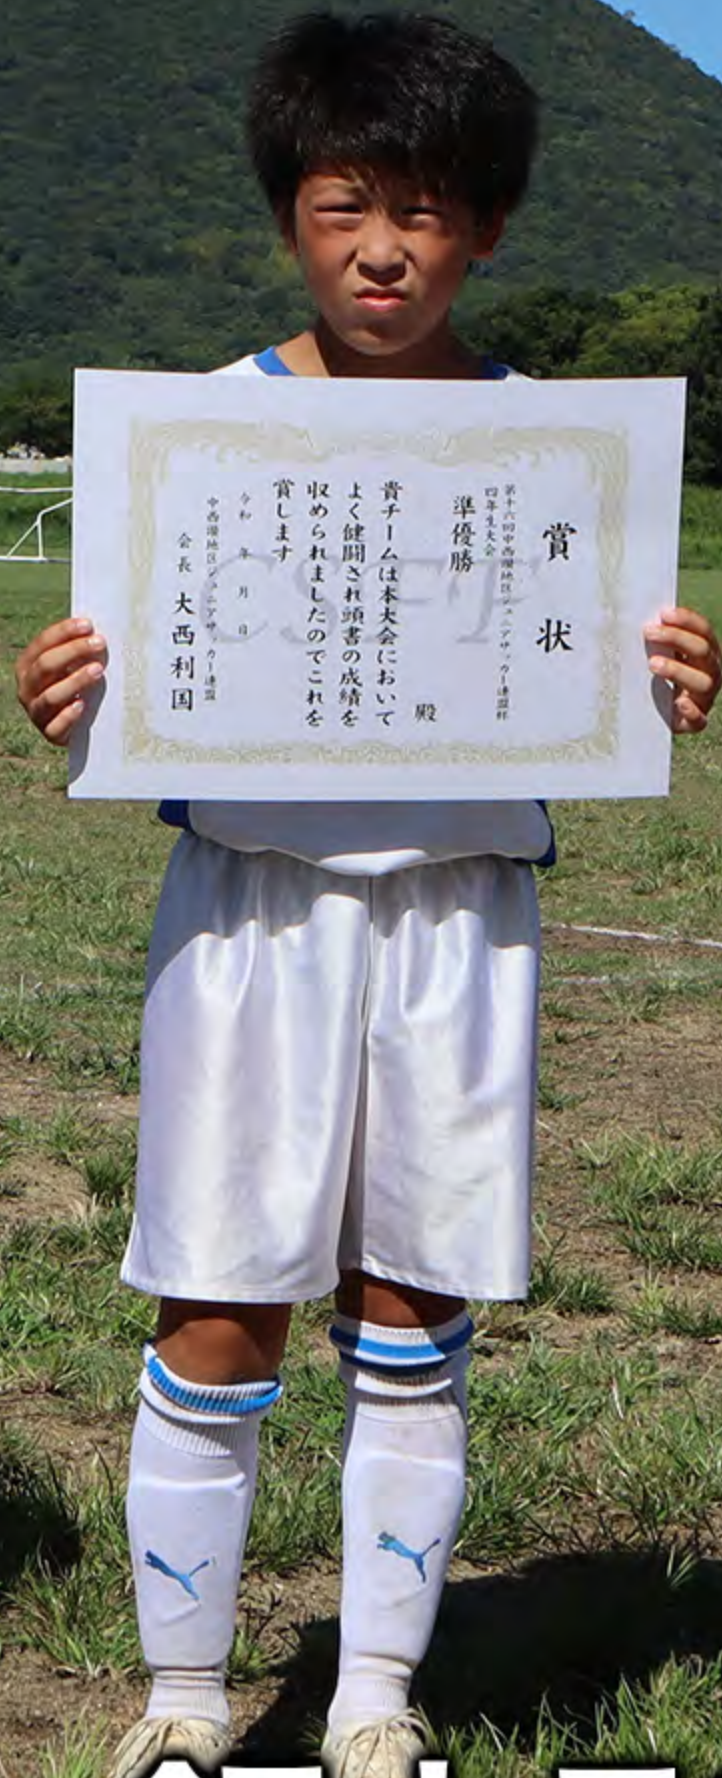 賞状
第十六回中西讃地区ジュニアサッカー連盟杯
四年生大会
準優勝
殿
貴チームは本大会において
よく健闘され頭書の成績を
収められましたのでこれを
賞します
令和 年 月 日
中西讃地区ジュニアサッカー連盟
会長 大西利国